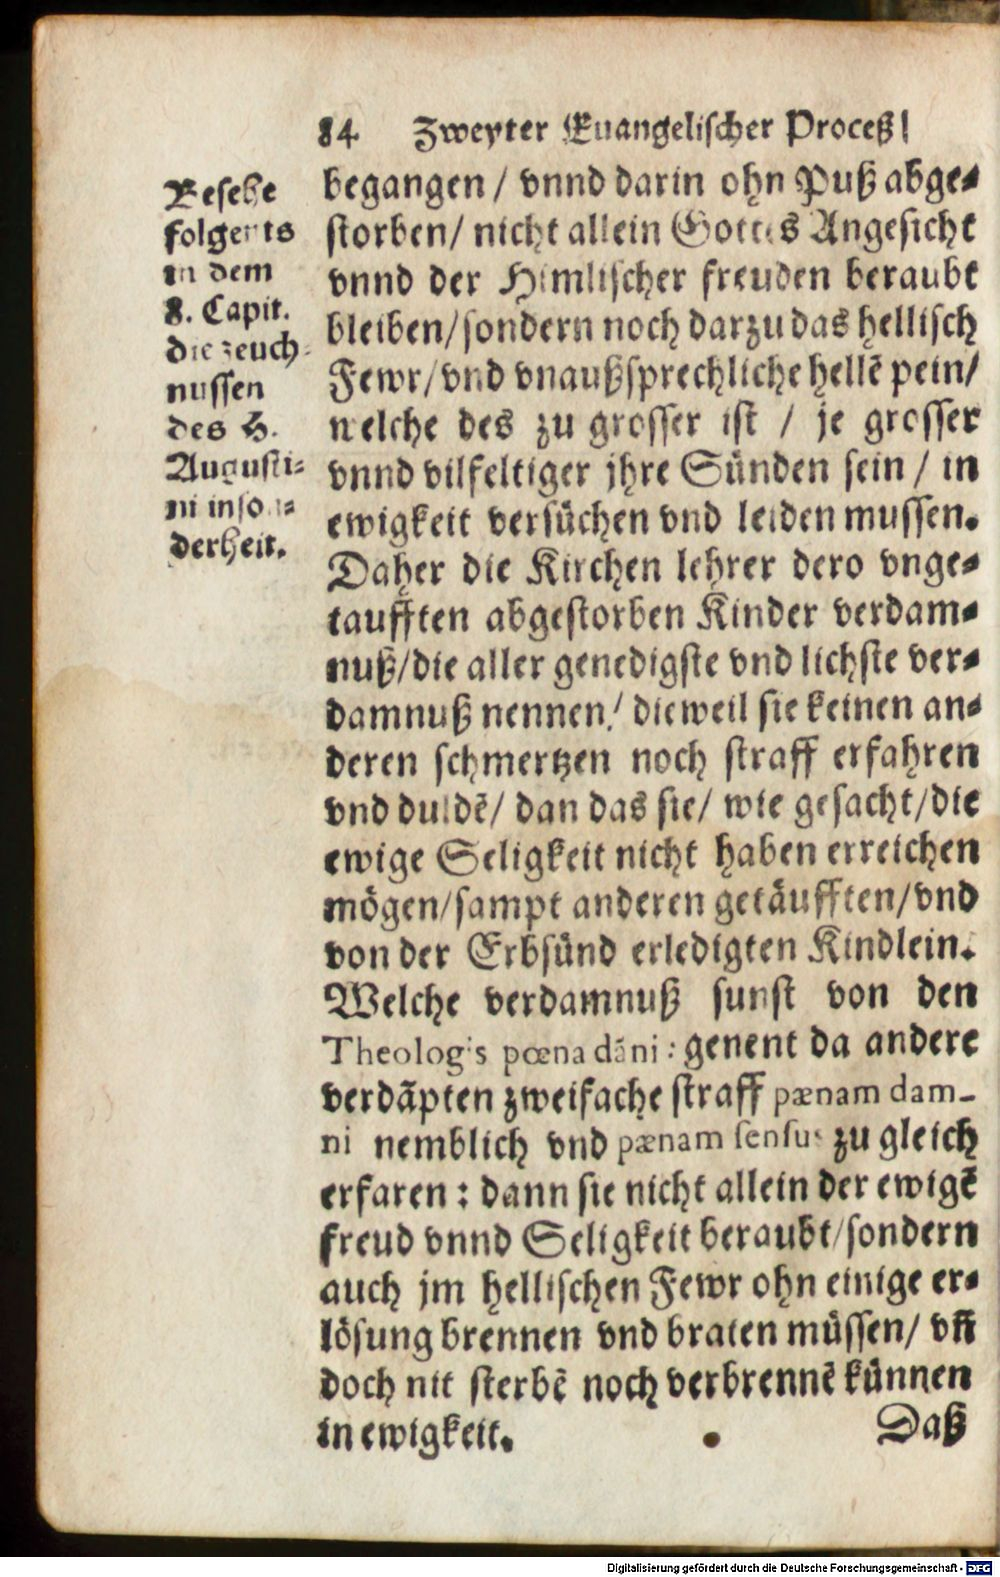 84 Zweyter Euangelischer Proceß/
Besehe
folgents
in dem
8. Capit.
die zeuch-
nussen
des H.
Augusti-
ni inson-
derheit.
begangen / vnnd darin ohn Puß abge-
storben/ nicht allein Gottes Angesicht
vnnd der Himlischer freuden beraubt
bleiben/sondern noch darzu das hellisch
Fewr/vnd vnaußsprechliche hellẽ pein/
welche des zu grosser ist / je grosser
vnnd vilfeltiger jhre Sünden sein / in
ewigkeit versüchen vnd leiden mussen.
Daher die Kirchen lehrer dero vnge-
taufften abgestorben Kinder verdam-
nuß/die aller genedigste vnd lichste ver-
damnuß nennen/ dieweil sie keinen an-
deren schmertzen noch straff erfahren
vnd duldẽ/ dan das sie/ wie gesacht/die
ewige Seligkeit nicht haben erreichen
mögen/sampt anderen getäufften/vnd
von der Erbsünd erledigten Kindlein.
Welche verdamnuß sunst von den
Theologis pœna dãni: genent da andere
verdãpten zweifache straff pænam dam-
ni nemblich vnd pænam sensus zu gleich
erfaren: dann sie nicht allein der ewigẽ
freud vnnd Seligkeit beraubt/sondern
auch jm hellischen Fewr ohn einige er-
lösung brennen vnd braten müssen/ vñ
doch nit sterbẽ noch verbrennẽ künnen
in ewigkeit.
Daß
Digitalisierung gefördert durch die Deutsche Forschungsgemeinschaft - DFG